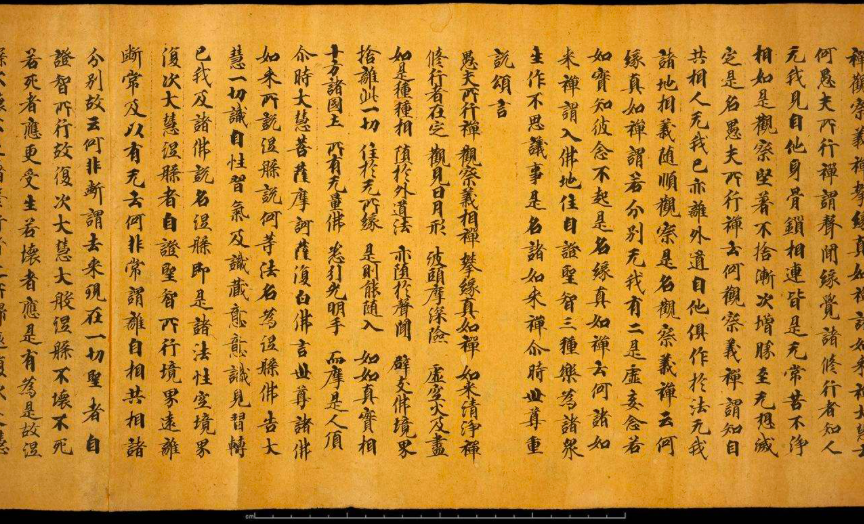 何愚夫所行禪謂聲聞緣覺諸修行者知人
无我見自他身骨鎖相連皆是无常苦不淨
相如是觀察堅著不捨漸次增勝至无想滅
定是名愚夫所行禪云何觀察義禪謂知自
共相人无我已亦離外道自他俱作於法无我
諸地相義随順觀察是名觀察義禪云何
緣真如禪謂若分別无我有二是虛妄念若
如實知彼念不起是名緣真如禪云何諸如
来禪謂入佛地住自證聖智三種樂為諸衆
生作不思議事是名諸如来禪尒時世尊重
説頌言
愚夫所行禪 觀察義相禪 攀緣真如禪 如来清淨禪
修行者在定 觀見日月形 波頭摩深險 虛空火及畫
如是種種相 墮於外道法 亦墮於聲聞 辟支佛境界
捨離此一切 住於无所緣 是則能随入 如如真實相
十方諸國土 所有无量佛 悉引光明手 而摩是人頂
尒時大慧菩薩摩訶薩復白佛言世尊諸佛
如来所説涅槃説何等法名為涅槃佛告大
慧一切識自性習氣及識藏意意識見習轉
已我及諸佛説名涅槃即是諸法性空境界
復次大慧涅槃者自證聖智所行境界遠離
断常及以有无云何非常謂離自相共相諸
分別故云何非断謂去来現在一切聖者自
證智所行故復次大慧大般涅槃不壞不死
若死者應更受生若壞者應是有為是故涅